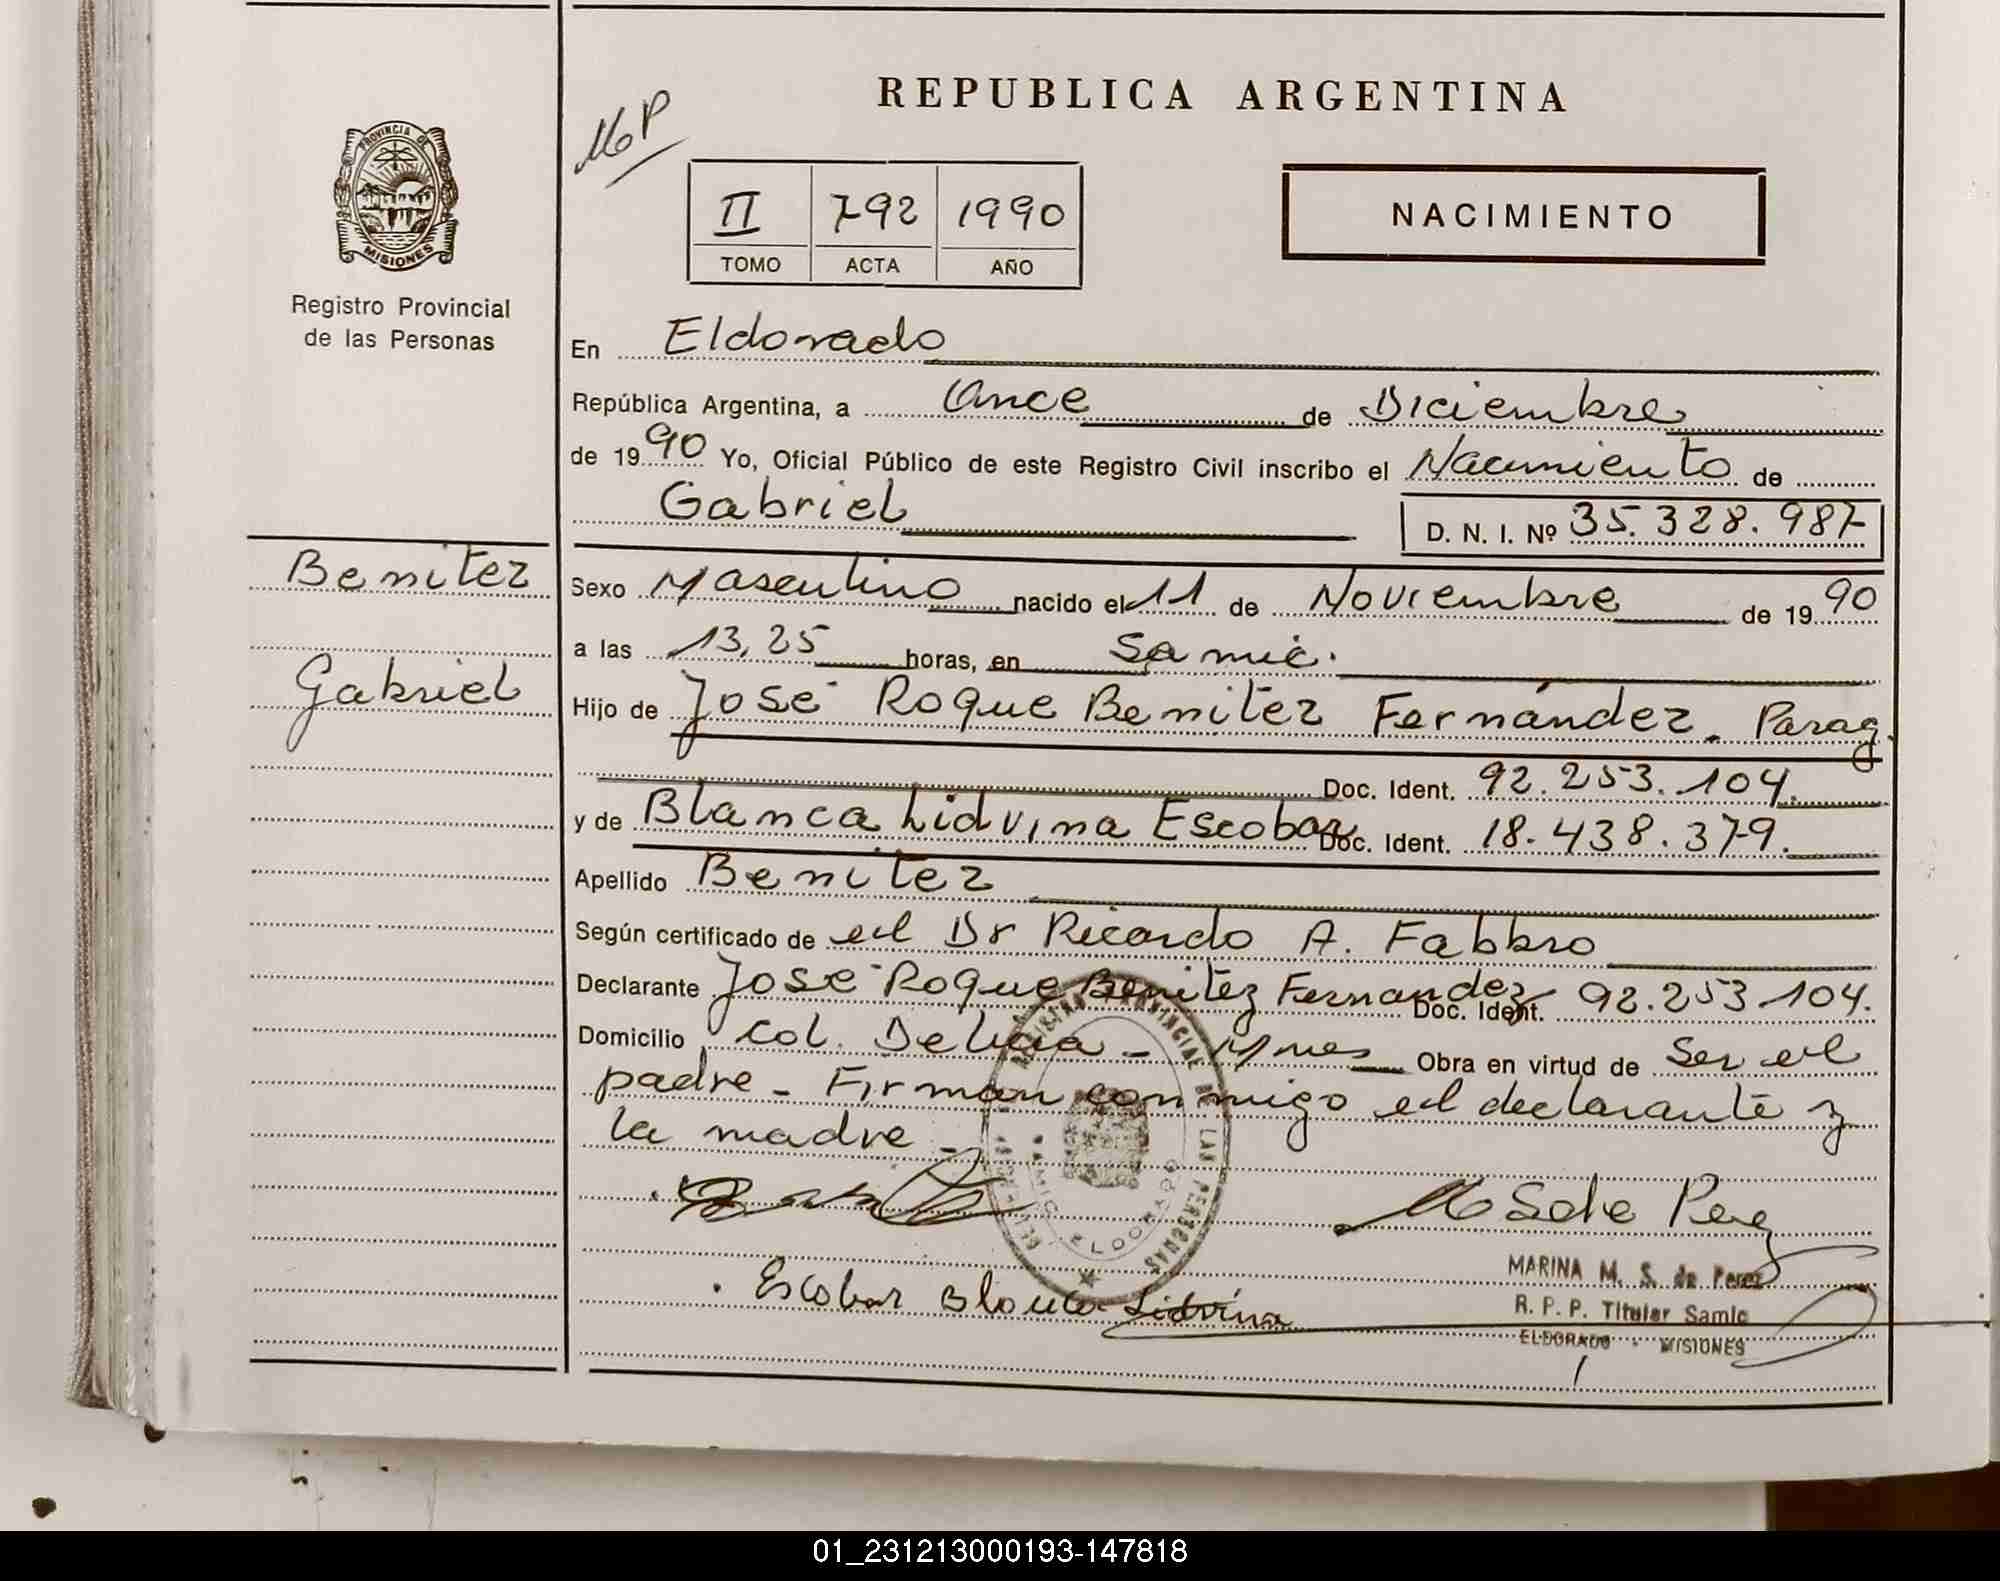 REPUBLICA ARGENTINA
PROVINCIA DE
MISIONES
Registro Provincial
de las Personas
II 792 1990
TOMO ACTA AÑO
NACIMIENTO
En Eldorado
República Argentina, a Once de Diciembre
de 1990 Yo, Oficial Público de este Registro Civil inscribo el Nacimiento de
Gabriel
D. N. I. Nº 35.328.987
Benitez
Gabriel
Sexo Masculino nacido el 11 de Noviembre de 1990
a las 13,25 horas, en Samic.
Hijo de José Roque Benitez Fernández. Parag.
Doc. Ident. 92.253.104.
y de Blanca Lidvina Escobar Doc. Ident. 18.438.379.
Apellido Benitez
Según certificado de el Dr Ricardo A. Fabbro
Declarante José Roque Benitez Fernandez Doc. Ident. 92.253.104.
Domicilio Col. Delicia - Mnes Obra en virtud de Ser el
padre - Firman conmigo el declarante y
la madre -
REGISTRO PROVINCIAL DE LAS PERSONAS
SAMIC ELDORADO
M Sole Perez
MARINA M. S. de Perez
R. P. P. Titular Samic
ELDORADO - MISIONES
Escobar Blanca Lidvina
01_231213000193-147818